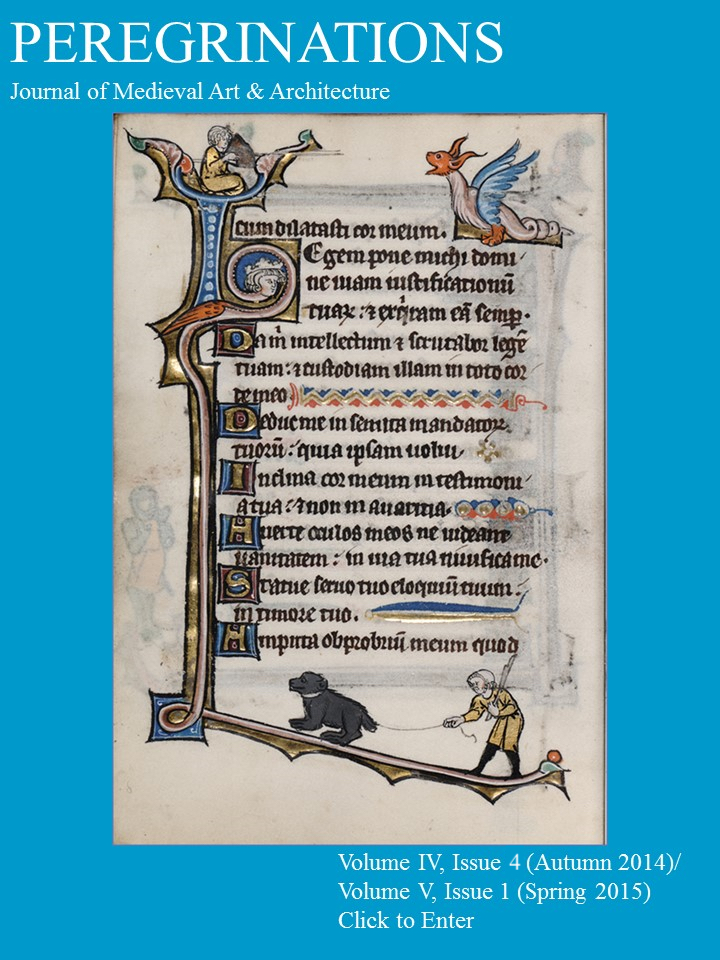 PEREGRINATIONS
Journal of Medieval Art & Architecture
cum dilatasti cor meum.
Legem pone michi domi
ne uiam iustificationū
tuaꝝ : ⁊ exq̄ram eā semꝑ·
Da m̄ intellectum ⁊ scrutabor legē
tuam : ⁊ custodiam illam in toto cor
de meo
Deduc me in semita mandatoꝝ
tuorū : quia ipsam uolui
Inclina cor meum in testimoni
a tua : ⁊ non in auaritia
Auerte oculos meos ne uideant
uanitatem : in uia tua uiuifica me·
Statue seruo tuo eloquiū tuum :
in timore tuo.
Amputa obprobriū meum quod
Volume IV, Issue 4 (Autumn 2014)/
Volume V, Issue 1 (Spring 2015)
Click to Enter